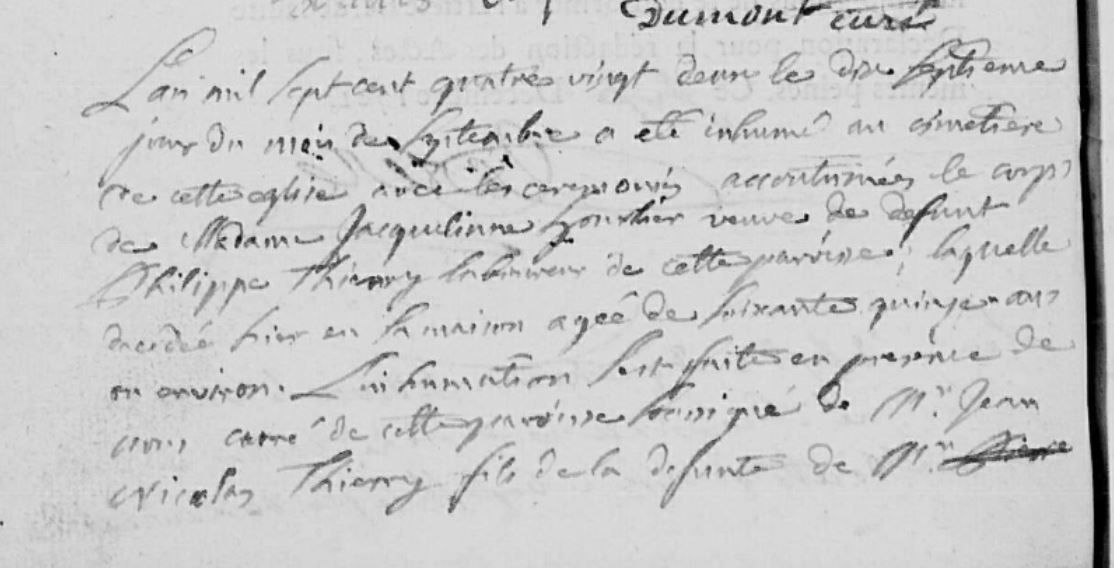 Dumont curé
L'an mil sept cent quatre vingt deux le dix septieme
jour du mois de septembre a eté inhumé au cimetiere
de cette eglise avec les ceremonies accoutumées le corps
de Madame Jacquelinne veuve de defunt
Philippe Thierry laboureur de cette paroisse, laquelle
decédée hier en sa maison agée de soixante quinze ans
ou environ. L'inhumation s'est faite en presence de
nous curé de cette paroisse soussigné de Mr. Jean
Nicolas Thierry fils de la defunte de Mr.